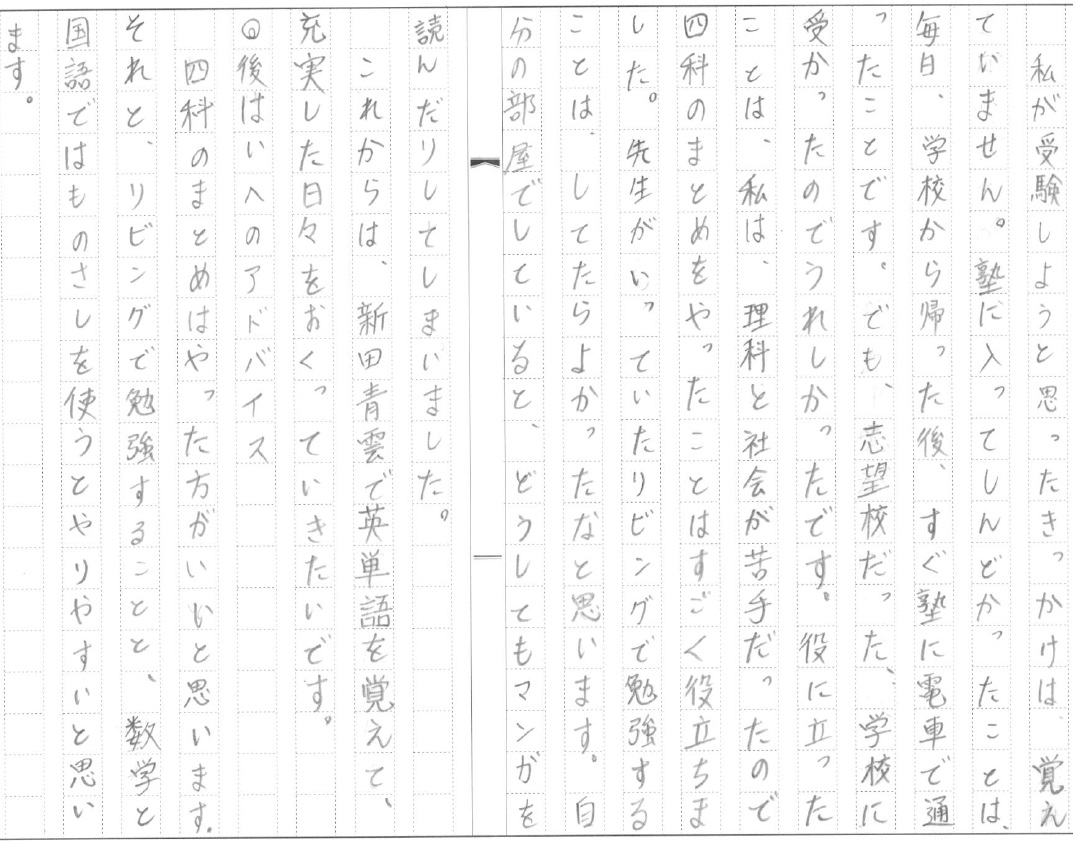 私が受験しようと思ったきっかけは、覚え
ていません。塾に入ってしんどかったことは、
毎日、学校から帰った後、すぐ塾に電車で通
ったことです。でも、志望校だった、学校に
受かったのでうれしかったです。役に立った
ことは、私は、理科と社会が苦手だったので
四科のまとめをやったことはすごく役立ちま
した。先生がいっていたリビングで勉強する
ことは、してたらよかったなと思います。自
分の部屋でしていると、どうしてもマンガを
読んだりしてしまいました。
これからは、新田青雲で英単語を覚えて、
充実した日々をおくっていきたいです。
◎後はいへのアドバイス
四科のまとめはやった方がいいと思います。
それと、リビングで勉強することと、数学と
国語ではものさしを使うとやりやすいと思い
ます。